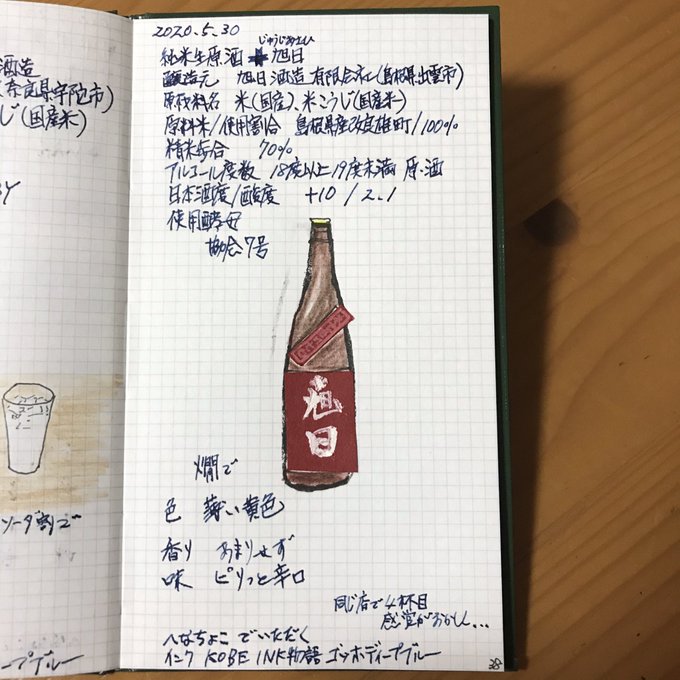 酒造
奈良県宇陀市)
じ(国産米)
ソーダ割で
ープブルー
2020.5.30
じゅうじあさひ
純米生原酒 十旭日
醸造元 旭日酒造有限会社(島根県出雲市)
原材料名 米(国産)、米こうじ(国産米)
原料米/使用割合 島根県産改良雄町/100%
精米歩合 70%
アルコール度数 18度以上19度未満 原酒
日本酒度/酸度 +10/2.1
使用酵母
協会7号
旭日
燗で
色 薄い黄色
香り あまりせず
味 ピリっと辛口
同じ店で4杯目
感覚がおかしく...
へなちょこ でいただく
インク KOBE INK物語 ゴッホディープブルー
38